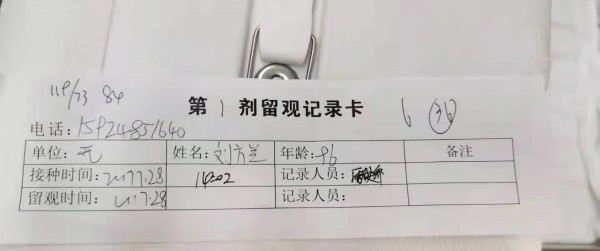 119/73 84
第1剂留观记录卡 6 36
电话:15924851640
单位:无 姓名:刘方兰 年龄:46 备注
接种时间:2021.7.28 14:02 记录人员:
留观时间: 2021.7.28 记录人员: